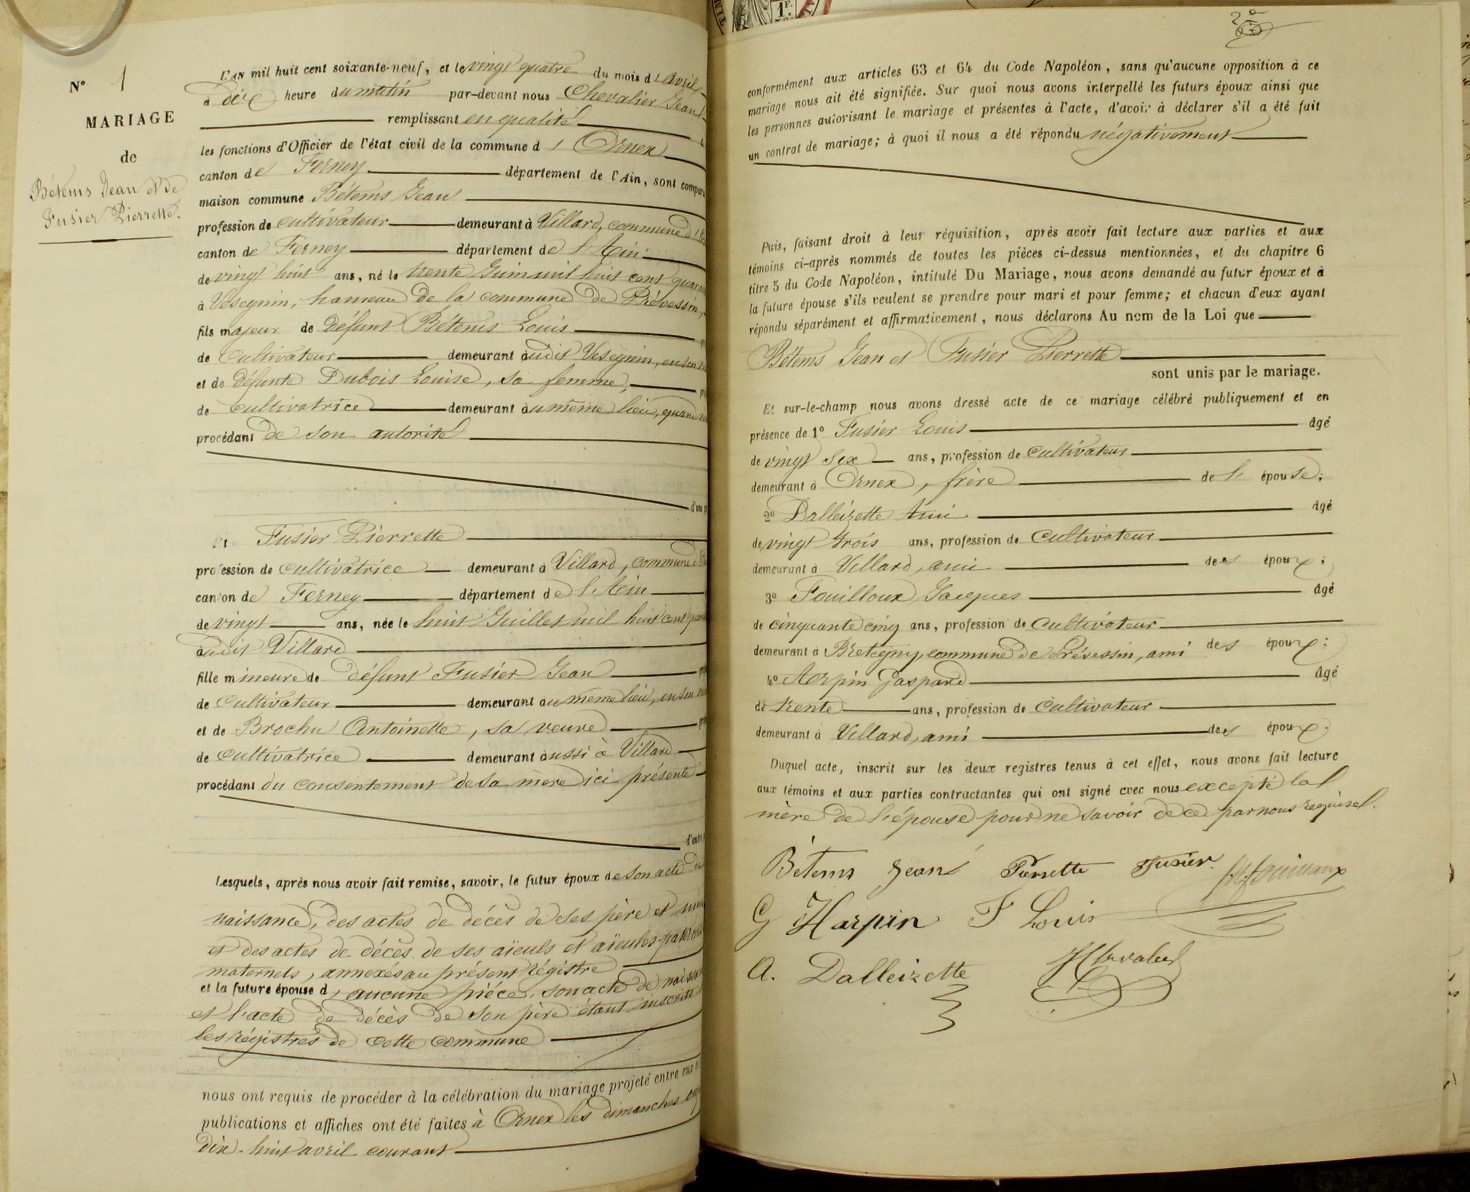 N° 1
MARIAGE
de
Bétems Jean et de
Fusier Pierrette.
L'AN mil huit cent soixante-neuf, et le vingt quatre du mois d'Avril
à dix heure du matin par-devant nous Chevalier Jean
remplissant en qualité
les fonctions d'Officier de l'état civil de la commune d'Ornex
canton de Ferney département de l'Ain, sont
maison commune Bétems Jean
profession de cultivateur demeurant à Villard, commune
canton de Ferney département de l'Ain
de vingt huit ans, né le trente Juin mil huit cent
à Vésegnin, hameau de la commune de Prévessin,
fils majeur de défunt Bétems Louis
de cultivateur demeurant audit Vésegnin,
et de défunte Dubois Louise, sa femme,
de cultivatrice demeurant au même lieu,
procédant de son autorité
Et Fusier Pierrette
profession de cultivatrice demeurant à Villard, commune
canton de Ferney département de l'Ain
de vingt ans, née le huit Juillet mil huit cent
audit Villard
fille mineure de défunt Fusier Jean
de cultivateur demeurant au même lieu,
et de Brochu Antoinette, sa veuve
de cultivatrice demeurant aussi à Villard
procédant du consentement de sa mère ici présente
Lesquels, après nous avoir fait remise, savoir, le futur époux de son acte de
naissance, des actes de décès de ses père et
et des actes de décès de ses aïeuls et aïeules
maternels, annexés au présent régistre
et la future épouse d'aucune pièce, son acte de
et l'acte de décès de son père étant
les régistres de cette commune
nous ont requis de procéder à la célébration du mariage projeté entre eux
publications et affiches ont été faites à Ornex les dimanches
dix-huit avril courant
2e
conformément aux articles 63 et 64 du Code Napoléon, sans qu'aucune opposition à ce
mariage nous ait été signifiée. Sur quoi nous avons interpellé les futurs époux ainsi que
les personnes autorisant le mariage et présentes à l'acte, d'avoir à déclarer s'il a été fait
un contrat de mariage; à quoi il nous a été répondu négativement
Puis, faisant droit à leur réquisition, après avoir fait lecture aux parties et aux
témoins ci-après nommés de toutes les pièces ci-dessus mentionnées, et du chapitre 6
titre 5 du Code Napoléon, intitulé Du Mariage, nous avons demandé au futur époux et à
la future épouse s'ils veulent se prendre pour mari et pour femme; et chacun d'eux ayant
répondu séparément et affirmativement, nous déclarons Au nom de la Loi que
Bétems Jean et Fusier Pierrette
sont unis par le mariage.
Et sur-le-champ nous avons dressé acte de ce mariage célébré publiquement et en
présence de 1° Fusier Louis âgé
de vingt six ans, profession de cultivateur
demeurant à Ornex, frère de l' épouse;
2° Dalleizette Ami âgé
de vingt trois ans, profession de cultivateur
demeurant à Villard, ami des époux;
3° Fouilloux Jacques âgé
de cinquante cinq ans, profession de cultivateur
demeurant à Bretegny, commune de Prévessin, ami des époux;
4° Harpin Gaspard âgé
de trente ans, profession de cultivateur
demeurant à Villard, ami des époux;
Duquel acte, inscrit sur les deux registres tenus à cet effet, nous avons fait lecture
aux témoins et aux parties contractantes qui ont signé avec nous excepté la
mère de l'épouse pour ne savoir de ce par nous requise.
Bétems Jean Pierrette Fusier
G Harpin F Louis
A. Dalleizette JChevalier